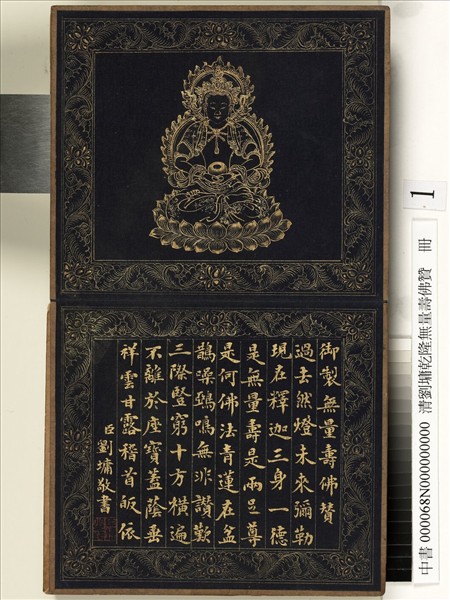 御製無量壽佛贊
過去然燈未來彌勒
現在釋迦三身一德
是無量壽是兩足尊
是何佛法青蓮在盆
鵲噪鴉鳴無非讚歎
三際豎窮十方橫遍
不離於座寶蓋蔭垂
祥雲甘露稽首皈依
臣劉墉敬書
1
中書 000068N000000000 清劉墉乾隆無量壽佛贊 冊